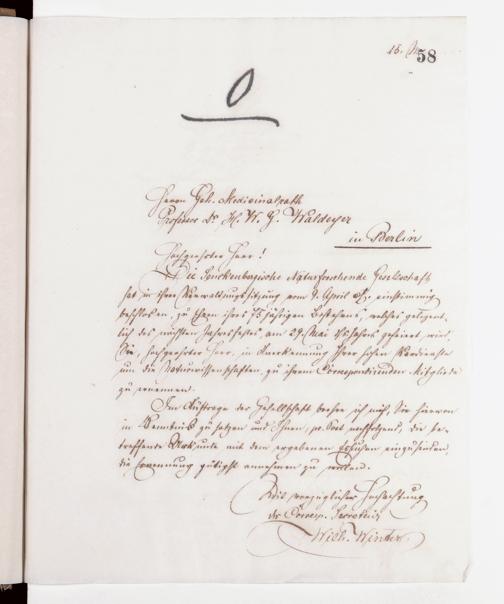 15. 58
0
Herrn Geh. Medicinalrath
Professor Dr. H. W. G. Waldeyer
in Berlin
Hochgeehrter Herr!
Die Senckenbergische Naturforschende Gesellschaft
hat in ihrer Verwaltungssitzung vom 9. April einstimmig
beschlossen, zu Ehren ihres 75 jährigen Bestehens, welches gelegent-
lich des nächsten Jahresfestes, am 29. Mai gefeiert wird,
Sie, hochgeehrter Herr, in Anerkennung Ihrer hohen Verdienste
um die Naturwissenschaften, zu ihrem Correspondirenden Mitgliede
zu ernennen.
Im Auftrage der Gesellschaft beehre ich mich, Sie hiervon
in Kenntniß zu setzen und Ihnen, nachfolgend, die be-
treffende Urkunde mit dem ergebenen Ersuchen einzusenden,
die Ernennung gütigst annehmen zu wollen.
Mit vorzüglicher Hochachtung
der Corresp. Secretär
Wilh. Winter